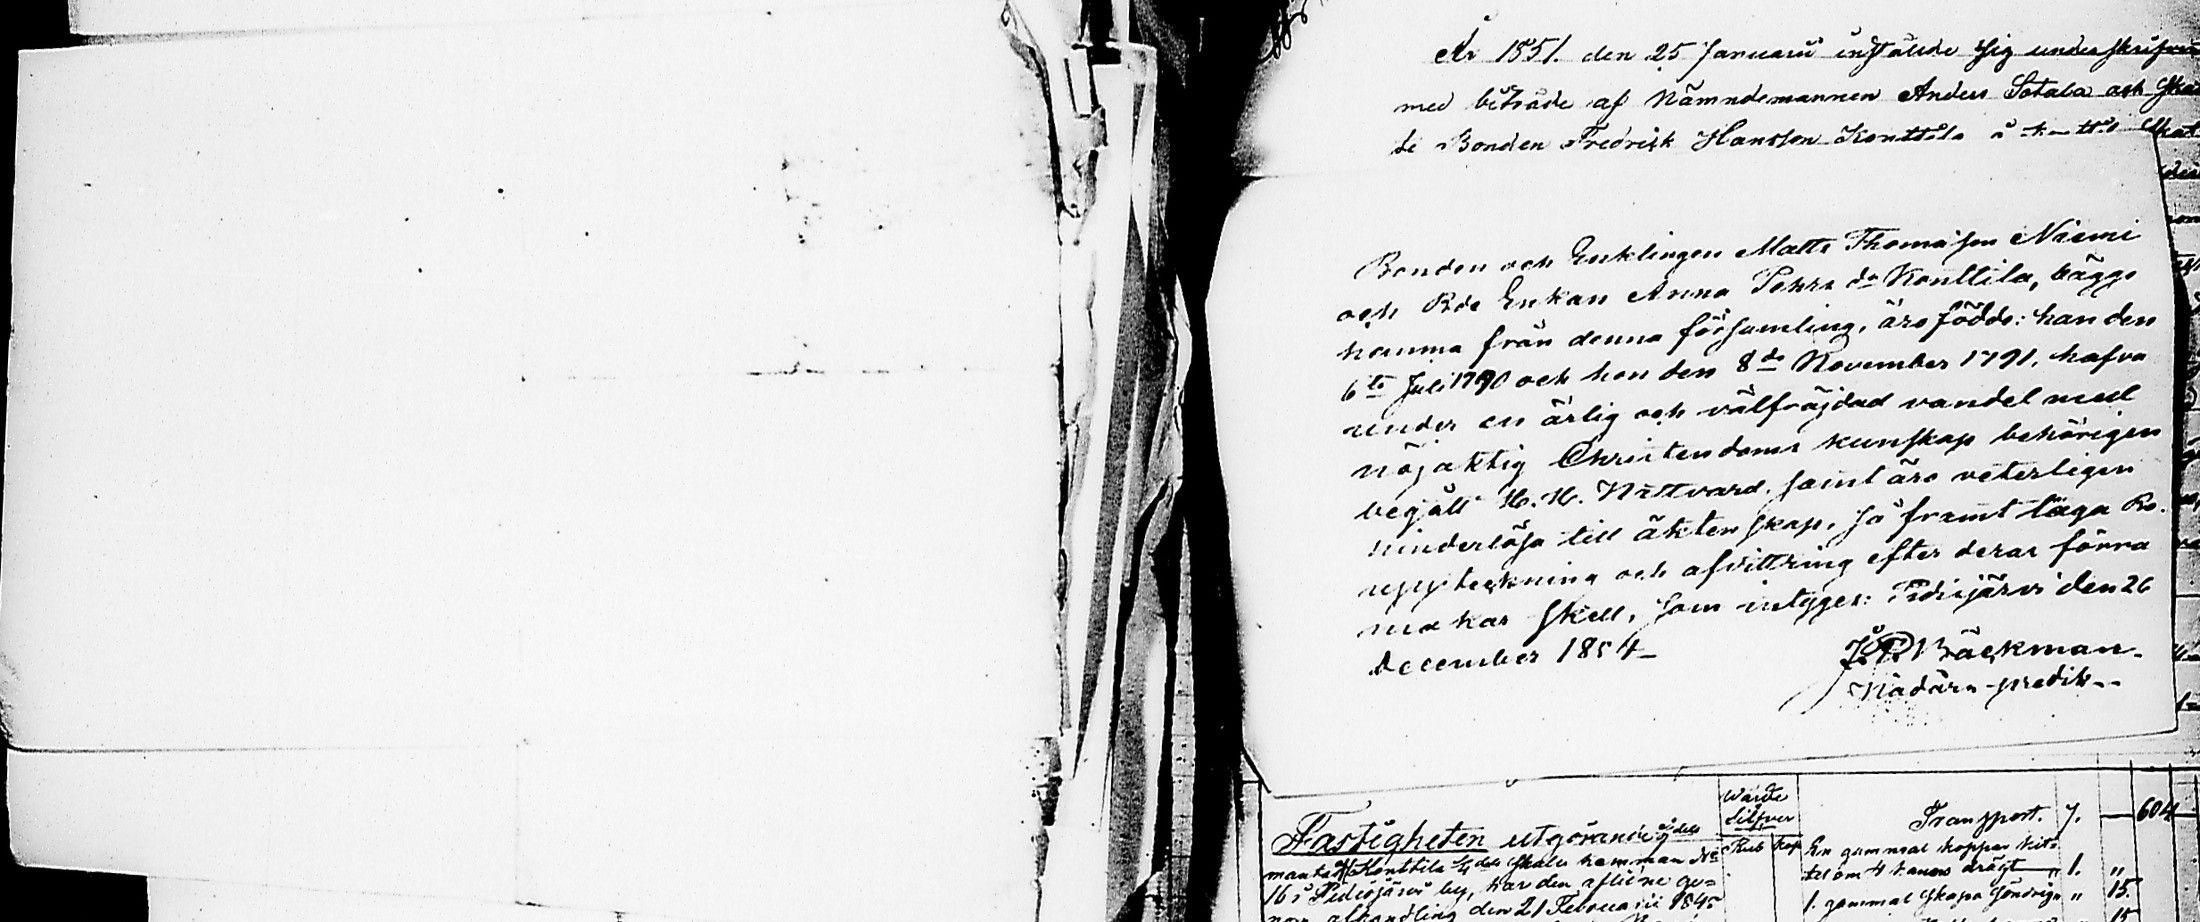 År 1851. den 25 Januarii instälde sig underskrifven
med biträde af Nämndemannen Anders Sotala och
de Bonden Fredrik Hansson Konttila å
Bonden och Enklingen Matts Thomasson Niemi
och Bde Enkan Anna Pehrs dr Konttila, bägge
hemma från denna församling, äro födde: han den
6te Juli 1790 och hon den 8de November 1791, hafva
under en ärlig och välfräjdad vandel med
nöjaktig Christendoms kunskap behörigen
begått H. H. Nattvard, samt äro veterligen
hinderlösa till äktenskap, så framt laga Bo-
uppteckning och afvittring efter deras förra
makar skett, som intyges: Pidisjärvi den 26
December 1854
J. P. Bäckman.
Nådårs-predik
Fastigheten utgörande
mantal Konttila 1/4 dels Skatte hemman No
16 i Pidisjärvi by, har den aflidne ge-
nom afhandling den 21 Februarii 1845
Värde
Silfver
Rub kop
Transport. 7. — 604
En gammal koppar kit-
tel om 4 kanors drägt „ 1. „
1. gammal skapa söndrig „ 15.
15